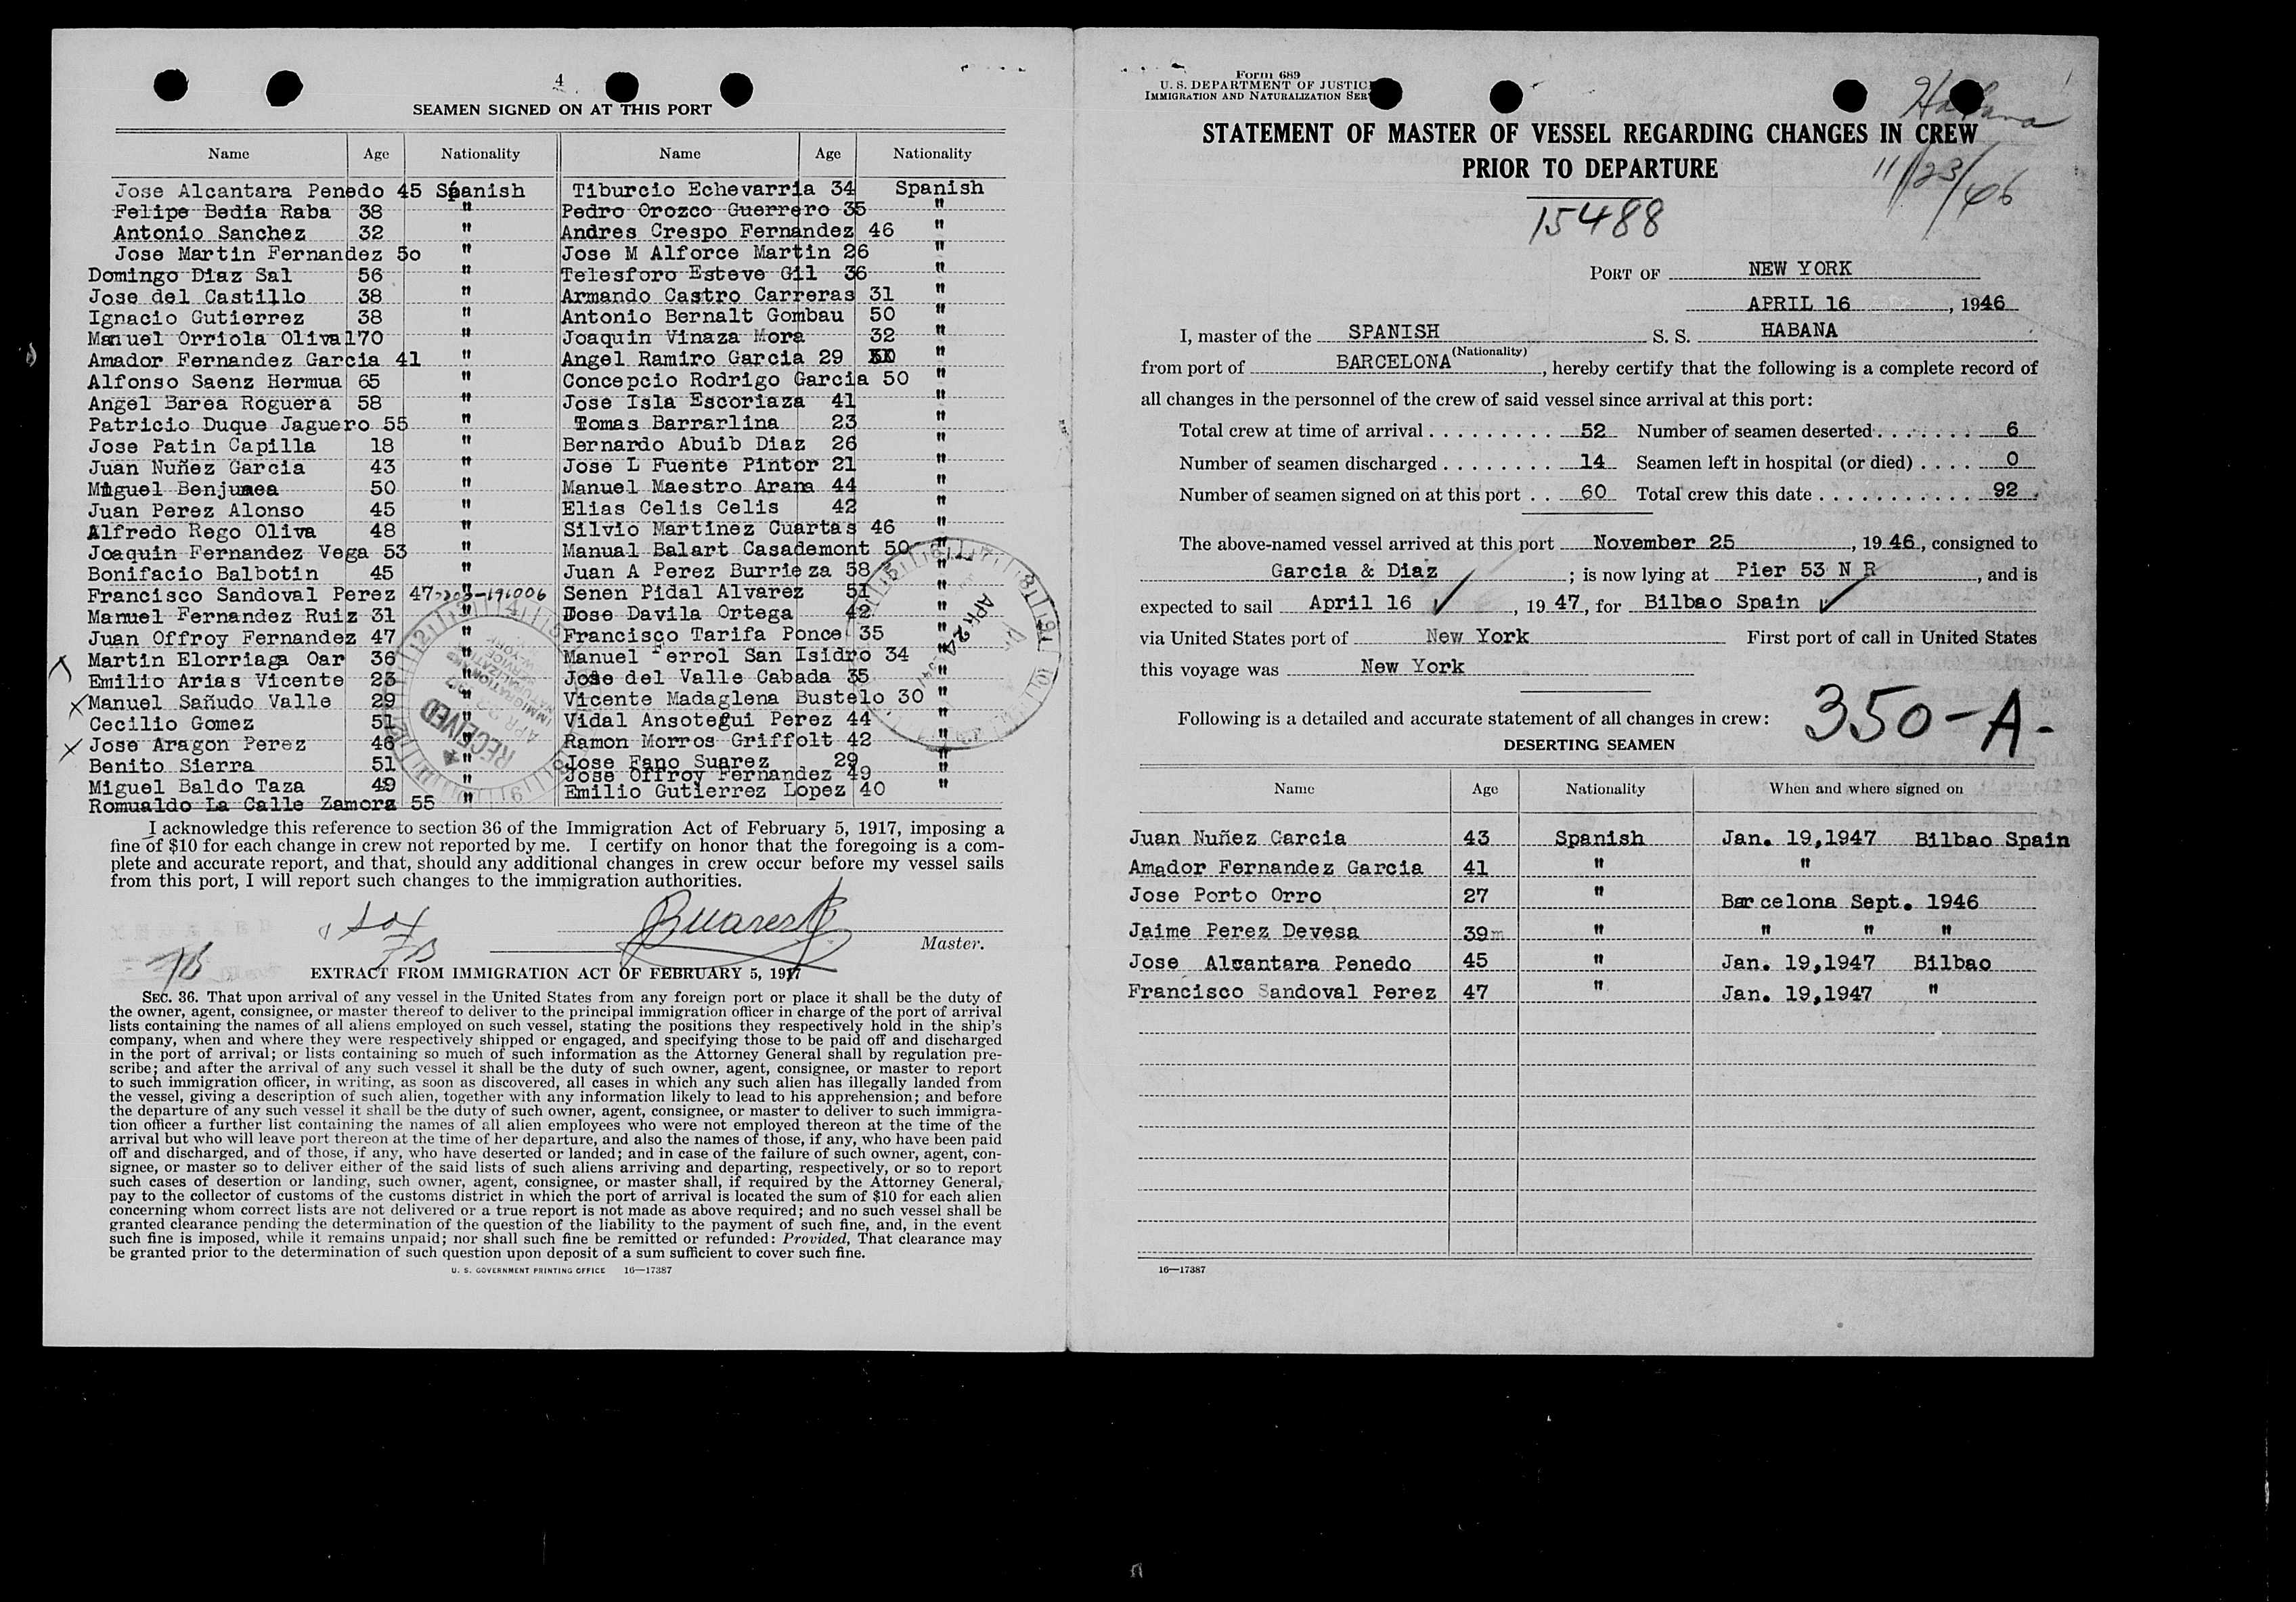 4
SEAMEN SIGNED ON AT THIS PORT
Name Age Nationality Name Age Nationality
Jose Alcantara Penedo 45 Spanish Tiburcio Echevarria 34 Spanish
Felipe Bedia Raba 38 " Pedro Orozco Guerrero 35 "
Antonio Sanchez 32 " Andres Crespo Fernandez 46 "
Jose Martin Fernandez 5o " Jose M Alforce Martin 26 "
Domingo Diaz Sal 56 " Telesforo Esteve Gil 36 "
Jose del Castillo 38 " Armando Castro Carreras 31 "
Ignacio Gutierrez 38 " Antonio Bernalt Gombau 50 "
Manuel Orriola Olival70 " Joaquin Vinaza Mora 32 "
Amador Fernandez Garcia 41 " Angel Ramiro Garcia 29 "
Alfonso Saenz Hermua 65 " Concepcio Rodrigo Garcia 50 "
Angel Barea Roguera 58 " Jose Isla Escoriaza 41 "
Patricio Duque Jaguero 55 " Tomas Barrarlina 23 "
Jose Patin Capilla 18 " Bernardo Abuib Diaz 26 "
Juan Nuñez Garcia 43 " Jose L Fuente Pintor 21 "
Miguel Benjumea 50 " Manuel Maestro Arana 44 "
Juan Perez Alonso 45 " Elias Celis Celis 42 "
Alfredo Rego Oliva 48 " Silvio Martinez Cuartas 46 "
Joaquin Fernandez Vega 53 " Manual Balart Casademont 50 "
Bonifacio Balbotin 45 " Juan A Perez Burrieza 58 "
Francisco Sandoval Perez 47 " Senen Pidal Alvarez 51 "
Manuel Fernandez Ruiz 31 " Dose Davila Ortega 42 "
Juan Offroy Fernandez 47 " Francisco Tarifa Ponce 35 "
Martin Elorriaga Oar 36 " Manuel Ferrol San Isidro 34 "
Emilio Arias Vicente 23 " Jose del Valle Cabada 35 "
X Manuel Sañudo Valle 29 " Vicente Madaglena Bustelo 30 "
Cecilio Gomez 51 " Vidal Ansotegui Perez 44 "
X Jose Aragon Perez 46 " Ramon Morros Griffolt 42 "
Benito Sierra 51 " Jose Fano Suarez 29 "
Miguel Baldo Taza 49 " Jose Offroy Fernandez 49 "
Romualdo La Calle Zamora 55 " Emilio Gutierrez Lopez 40 "
RECEIVED
APR 24
I acknowledge this reference to section 36 of the Immigration Act of February 5, 1917, imposing a
fine of $10 for each change in crew not reported by me. I certify on honor that the foregoing is a com-
plete and accurate report, and that, should any additional changes in crew occur before my vessel sails
from this port, I will report such changes to the immigration authorities.
Master.
EXTRACT FROM IMMIGRATION ACT OF FEBRUARY 5, 1917
SEC. 36. That upon arrival of any vessel in the United States from any foreign port or place it shall be the duty of
the owner, agent, consignee, or master thereof to deliver to the principal immigration officer in charge of the port of arrival
lists containing the names of all aliens employed on such vessel, stating the positions they respectively hold in the ship's
company, when and where they were respectively shipped or engaged, and specifying those to be paid off and discharged
in the port of arrival; or lists containing so much of such information as the Attorney General shall by regulation pre-
scribe; and after the arrival of any such vessel it shall be the duty of such owner, agent, consignee, or master to report
to such immigration officer, in writing, as soon as discovered, all cases in which any such alien has illegally landed from
the vessel, giving a description of such alien, together with any information likely to lead to his apprehension; and before
the departure of any such vessel it shall be the duty of such owner, agent, consignee, or master to deliver to such immigra-
tion officer a further list containing the names of all alien employees who were not employed thereon at the time of the
arrival but who will leave port thereon at the time of her departure, and also the names of those, if any, who have been paid
off and discharged, and of those, if any, who have deserted or landed; and in case of the failure of such owner, agent, con-
signee, or master so to deliver either of the said lists of such aliens arriving and departing, respectively, or so to report
such cases of desertion or landing, such owner, agent, consignee, or master shall, if required by the Attorney General,
pay to the collector of customs of the customs district in which the port of arrival is located the sum of $10 for each alien
concerning whom correct lists are not delivered or a true report is not made as above required; and no such vessel shall be
granted clearance pending the determination of the question of the liability to the payment of such fine, and, in the event
such fine is imposed, while it remains unpaid; nor shall such fine be remitted or refunded: Provided, That clearance may
be granted prior to the determination of such question upon deposit of a sum sufficient to cover such fine.
U. S. GOVERNMENT PRINTING OFFICE 16—17387
Form 689
U. S. DEPARTMENT OF JUSTIC
IMMIGRATION AND NATURALIZATION SER
Habana
STATEMENT OF MASTER OF VESSEL REGARDING CHANGES IN CREW
PRIOR TO DEPARTURE
11/23/46
15488
PORT OF NEW YORK
APRIL 16, 1946
I, master of the SPANISH S. S. HABANA
(Nationality)
from port of BARCELONA, hereby certify that the following is a complete record of
all changes in the personnel of the crew of said vessel since arrival at this port:
Total crew at time of arrival . . . . . . . . . 52 Number of seamen deserted . . . . . . . 6
Number of seamen discharged . . . . . . . . 14 Seamen left in hospital (or died) . . . . 0
Number of seamen signed on at this port . . 60 Total crew this date . . . . . . . . . . . 92
The above-named vessel arrived at this port November 25, 1946, consigned to
Garcia & Diaz; is now lying at Pier 53 N R, and is
expected to sail April 16, 1947, for Bilbao Spain
via United States port of New York First port of call in United States
this voyage was New York
Following is a detailed and accurate statement of all changes in crew: 350-A-
DESERTING SEAMEN
Name Age Nationality When and where signed on
Juan Nuñez Garcia 43 Spanish Jan. 19,1947 Bilbao Spain
Amador Fernandez Garcia 41 " "
Jose Porto Orro 27 " Barcelona Sept. 1946
Jaime Perez Devesa 39 " " " "
Jose Alcantara Penedo 45 " Jan. 19,1947 Bilbao
Francisco Sandoval Perez 47 " Jan. 19,1947 "
16—17387